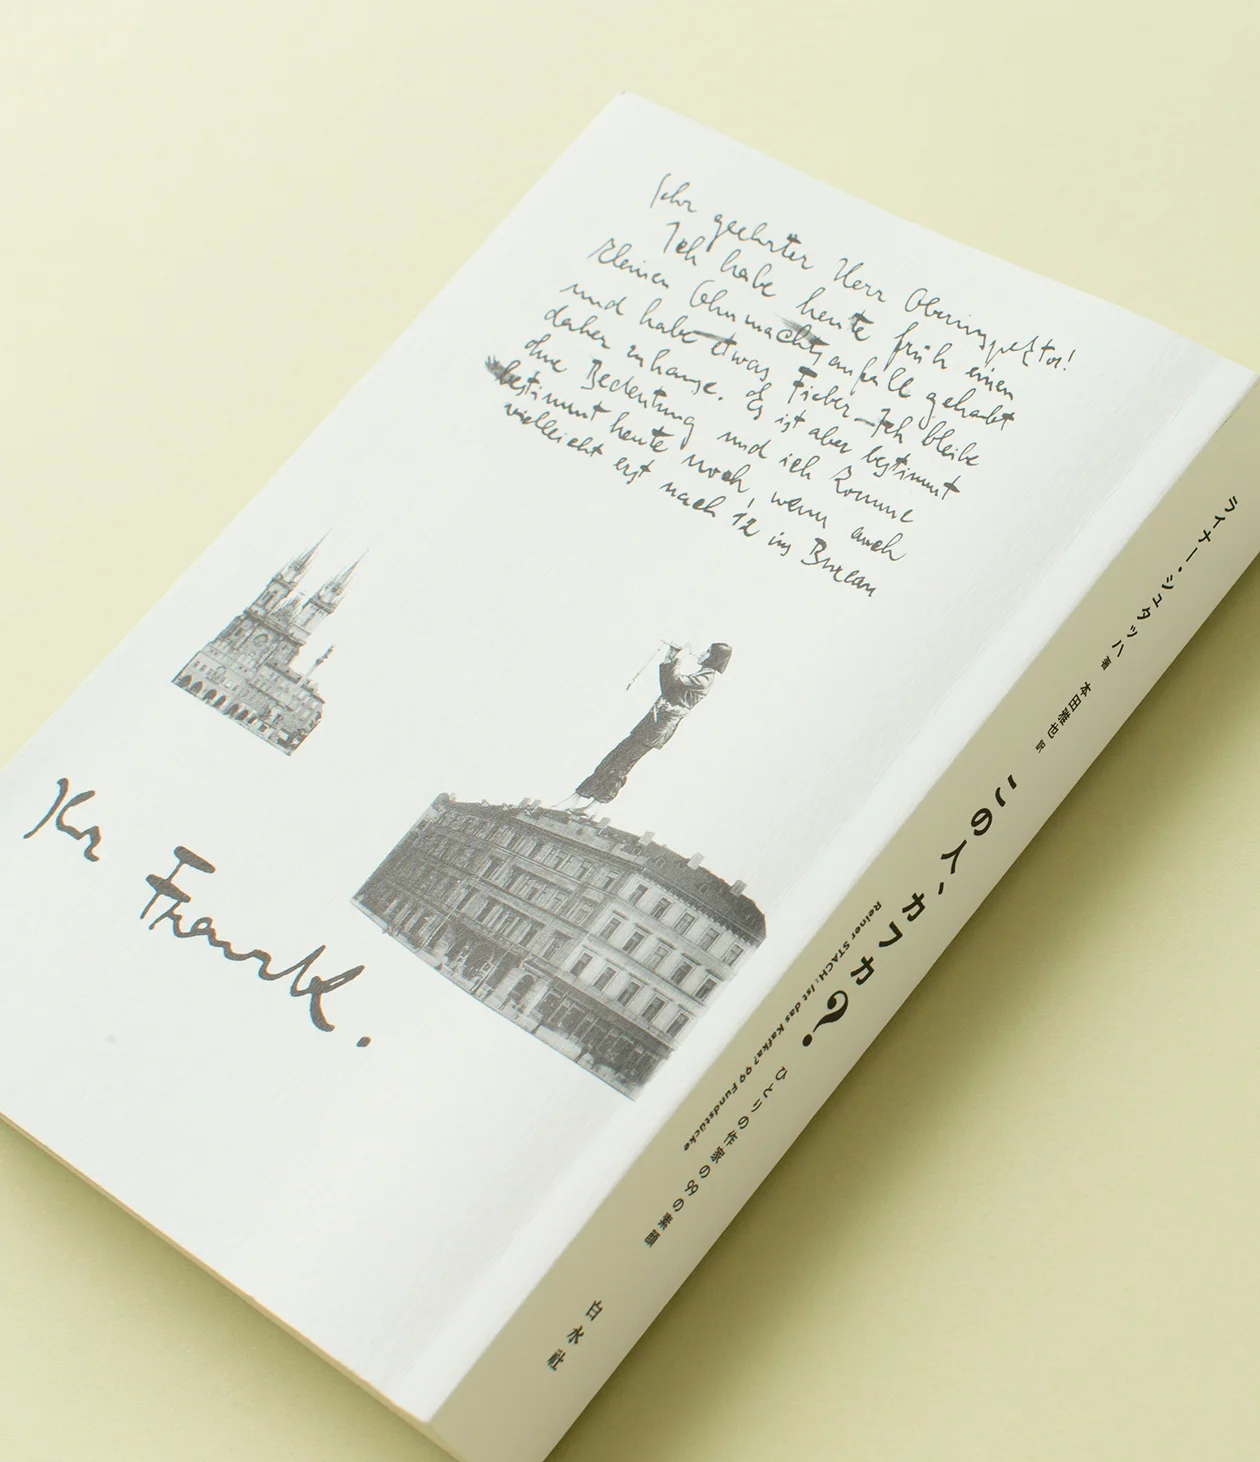 Sehr geehrter Herr Oberinspektor!
Ich habe heute früh einen
kleinen Ohnmachtsanfall gehabt
und habe etwas Fieber. Ich bleibe
daher zuhause. Es ist aber bestimmt
ohne Bedeutung und ich komme
bestimmt heute noch, wenn auch
vielleicht erst nach 12 ins Bureau
Ihr FranzK.
ライナー・シュタッハ 著 本田雅也 訳
この人、カフカ?
ひとりの作家の99の素顔
Reiner STACH: Ist das Kafka? 99 Fundstücke
白水社